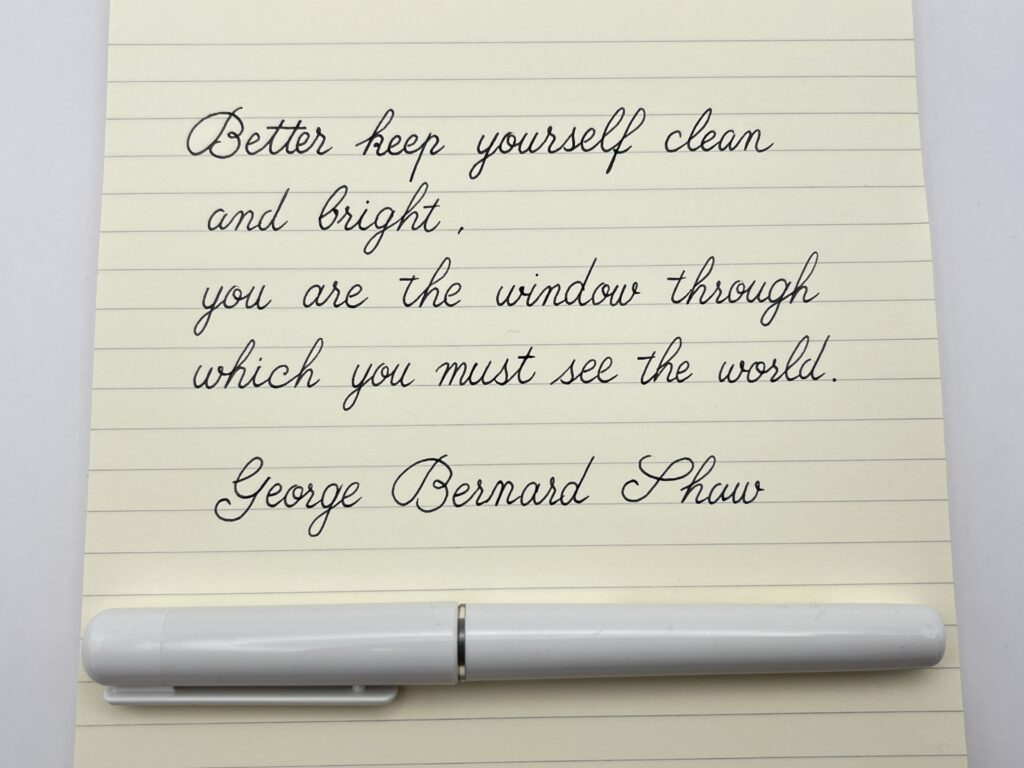 Better keep yourself clean
and bright,
you are the window through
which you must see the world.
George Bernard Shaw